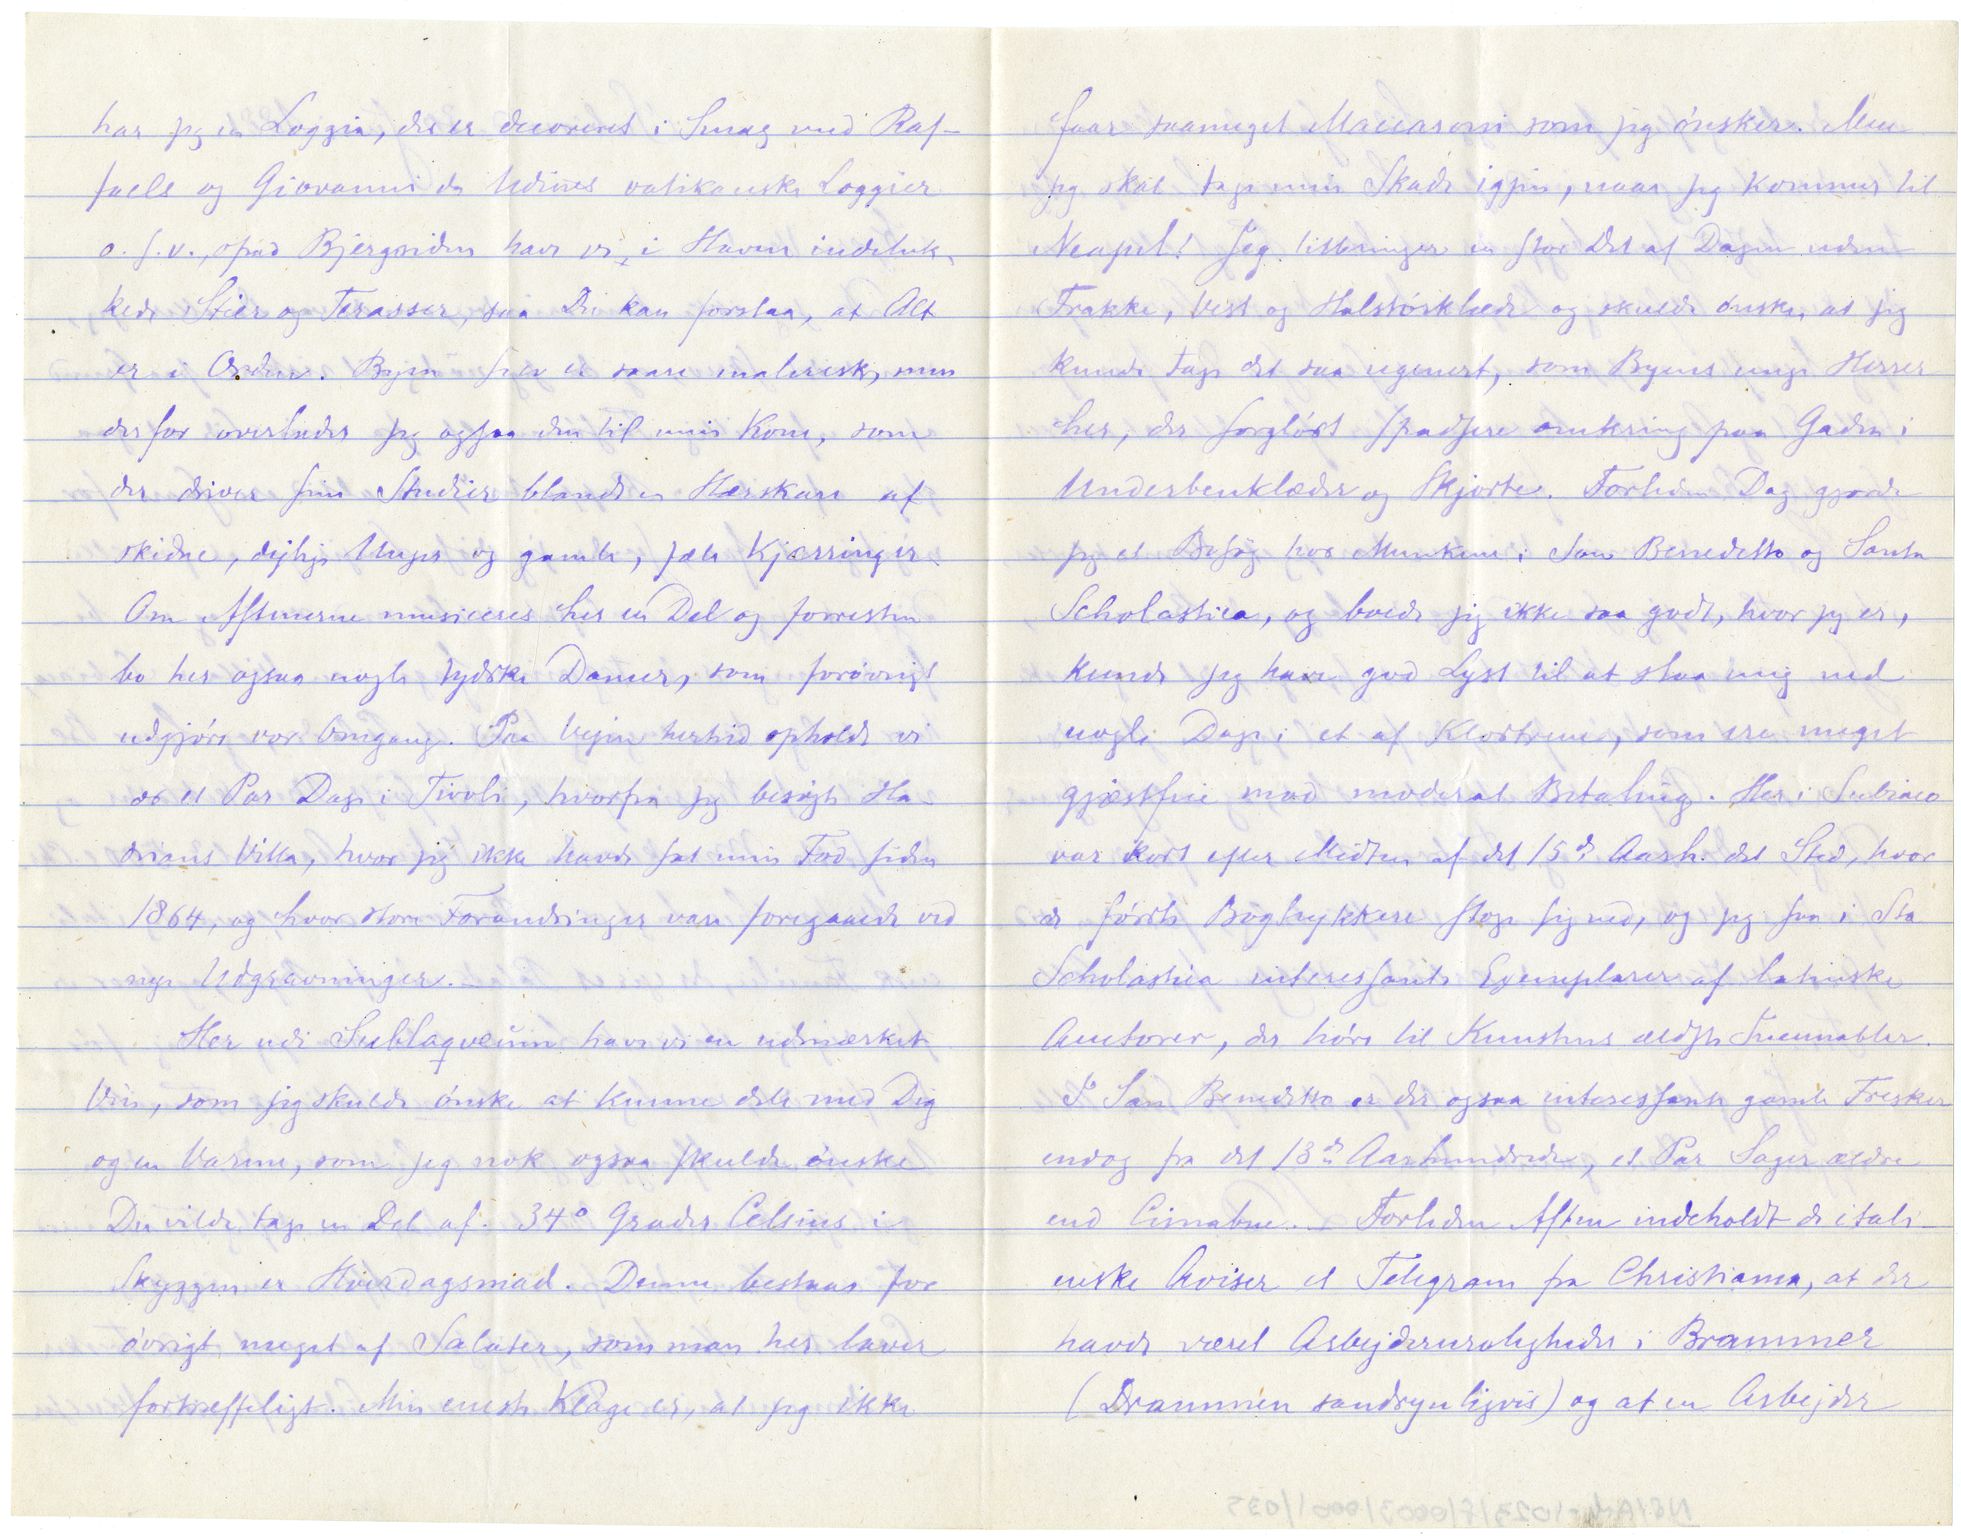 har jeg en Loggia, der er decoreret i Smag med Raf-
faels og Giovanni da Udines vatikanske Loggier
o.s.v., opad Bjergsiden have vi i Haven indeluk-
kede Stier og Terasser, saa Du kan forstaa, at Alt
er i Orden. Byen her er saare malerisk, men
derfor overlader jeg ogsaa den til min Kone, som
der driver sine Studier blandt en Hærskare af
skidne, deilige Unger og gamle, fæle Kjærringer.
Om Aftenerne musiceres her en Del og forresten
bo her ogsaa nogle tydske Damer, som forøvrigt
udgjøre vor Omgang. Paa Vejen hertid opholdt vi
os et Par Dage i Tivoli, hvorfra jeg besøgte Ha-
drians Villa, hvor jeg ikke havde sat min Fod siden
1864, og hvor store Forandringer vare foregaaede ved
nye Udgravninger.—
Her udi Sublaqveum have vi en udmærket
Vin, som jeg skulde ønske at kunne dele med Dig
og en Varme, som jeg nok ogsaa skulde ønske
Du vilde tage en Del af. 34° Grader Celsius i
Skyggen er Hverdagsmad. Denne bestaar for
øvrigt meget af Salater, som man her laver
fortræffeligt. Min eneste Klage er, at jeg ikke
faar saameget Maccaroni som jeg ønsker. Men
jeg skal tage min Skade igjen, naar jeg kommer til
Neapel! Jeg tilbringer en stor Del af Dagen uden
Frakke, Vest og Halstørklæde og skulde ønske, at jeg
kunde tage det saa ugenert, som Byens unge Herrer
her, der sorgløst spadsere omkring paa Gaden i
Underbenklæder og Skjorte. Forleden Dag gjorde
jeg et Besøg hos Munkene i San Benedetto og Santa
Scholastica, og boede jeg ikke saa godt, hvor jeg er,
kunde jeg have god Lyst til at slaa mig ned
nogle Dage i et af Klostrene, som ere meget
gjæstfrie mod moderat Betaling. Her i Subiaco
var kort efter Midten af det 15de Aarh. det Sted, hvor
de første Bogtrykkere sloge sig ned, og jeg saa i Sta
Scholastica interessante Exemplarer af latinske
Auctorer, der høre til Kunstens ældste Incunabler.
I San Benedetto er der ogsaa interessante gamle Fresker
endog fra det 13de Aarhundrede, et Par Sager ældre
end Cimabue.— Forleden Aften indeholdt de itali-
enske Aviser et Telegram fra Christiania, at der
havde været Arbejderuroligheder i Brammer
(Drammen sandsynligvis) og at en Arbejder